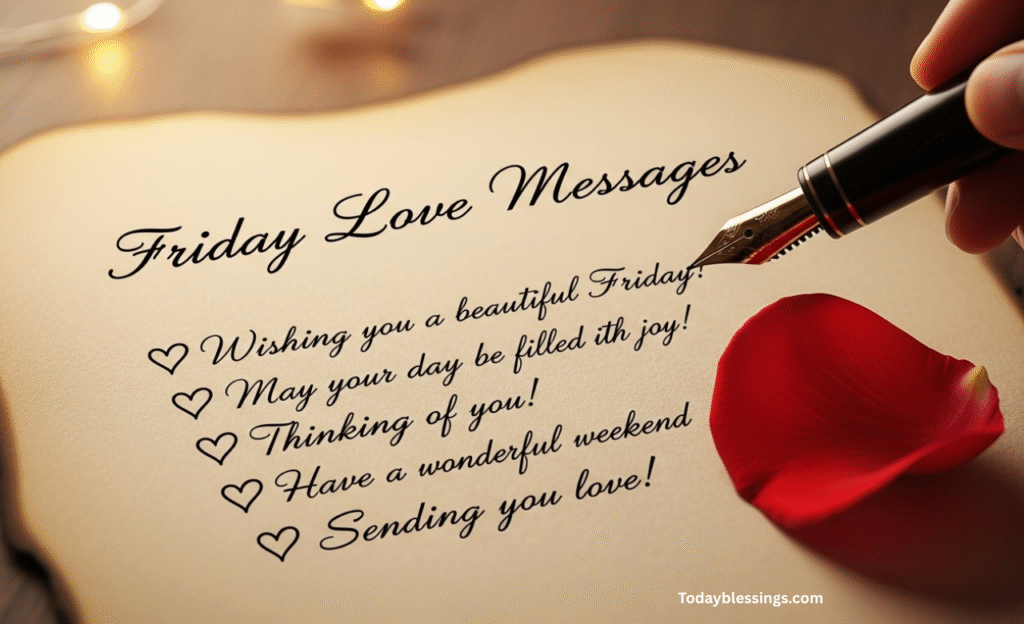 Friday Love Messages
♡ Wishing you a beautiful Friday!
♡ May your day be filled ith joy!
♡ Thinking of you!
♡ Have a wonderful weekend
♡ Sending you love!
Todayblessings.com